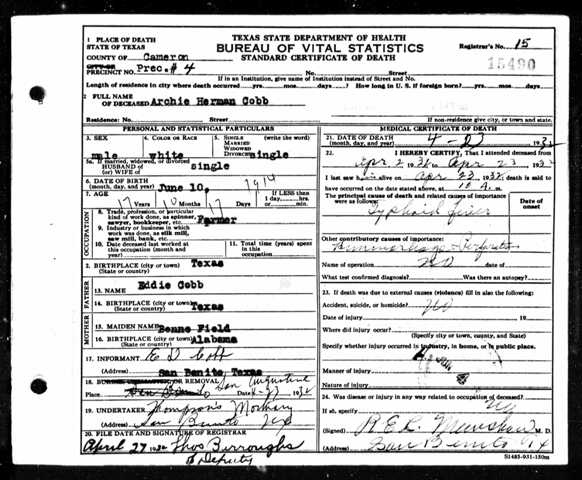 TEXAS STATE DEPARTMENT OF HEALTH
BUREAU OF VITAL STATISTICS
STANDARD CERTIFICATE OF DEATH
Registrar's No. 15
15490
1 PLACE OF DEATH
STATE OF TEXAS
COUNTY OF Cameron
CITY OR
PRECINCT NO. Prec. # 4 No. Street
If in an institution, give name of institution instead of Street and No.
Length of residence in city where death occurred yrs. mos. days How long in U. S. if foreign born? yrs. mos. days
2 FULL NAME
OF DECEASED Archie Herman Cobb
Residence: No. Street
If non-residence give city, or town and state.
PERSONAL AND STATISTICAL PARTICULARS
3. SEX male
4. COLOR OR RACE white
5. SINGLE
MARRIED
WIDOWED
DIVORCED (write the word) single
5a. If married, widowed, or divorced
HUSBAND OF
(or) WIFE of single
6. DATE OF BIRTH
(month, day, and year) June 10, 1914
7. AGE 17 Years 10 Months 17 Days If LESS then
1 day, hrs.
or min.
OCCUPATION
8. Trade, profession, or particular
kind of work done, as spinner,
sawyer, bookkeeper, etc. Farmer
9. Industry or business in which
work was done, as silk mill,
saw mill, bank, etc.
10. Date deceased last worked at
this occupation (month and
year)
11. Total time (years)
spent in this
occupation
2. BIRTHPLACE (city or town) Texas
(State or country)
FATHER
13. NAME Eddie Cobb
14. BIRTHPLACE (city or town) Texas
(State or country)
MOTHER
15. MAIDEN NAME Benne Field
16. BIRTHPLACE (city or town) Alabama
(State or country)
17. INFORMANT E D Cobb
(Address) San Benito Texas
18. OR REMOVAL San Augustine
Place San Benito 4-27 1932
19. UNDERTAKER Thompson's Mortuary
(Address) San Benito Tex
20. FILE DATE AND SIGNATURE OF REGISTRAR
April 27 1932 Thos Burroughs
Deputy
MEDICAL CERTIFICATE OF DEATH
21. DATE OF DEATH
(month, day, and year) 4-23 1932
22. I HEREBY CERTIFY, That I attended deceased from
Apr 2 1932 to Apr 23 1932
I last saw him alive on Apr 23 1932 death is said to
have occurred on the date stated above, at 10 A. m.
The principal cause of death and related causes of importance
were as follows: Date of
onset
Typhoid fever
Other contributory causes of importance:
Name of operation no Date of
What test confirmed diagnosis? Was there an autopsy?
23. If death was due to external causes (violence) fill in also the following:
Accident, suicide, or homicide? no
Date of injury 19
Where did injury occur?
(Specify city or town, county, and State)
Specify whether injury occurred in industry, in home, or in public place.
Manner of injury
Nature of injury
24. Was disease or injury in any way related to occupation of deceased?
If so, specify no
(Signed) M. D.
(Address) San Benito Tx
S1485-931-150m